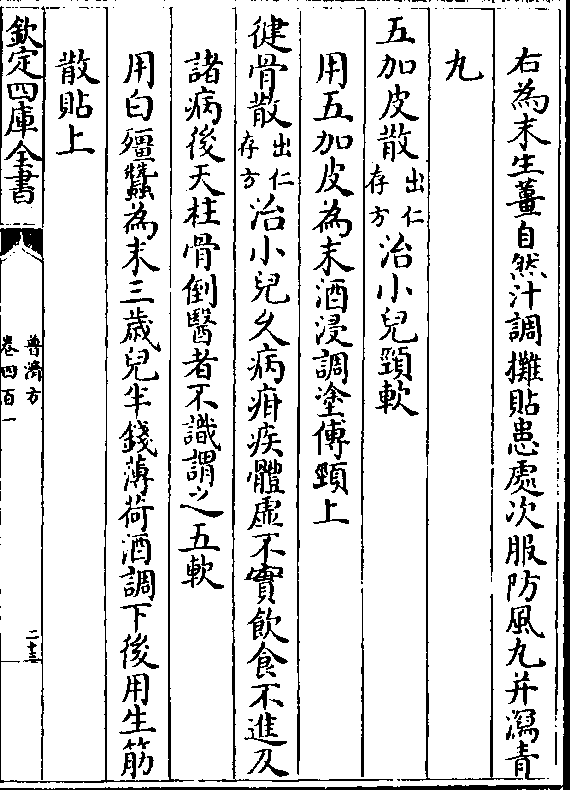 右為末生薑自然汁調攤貼患處次服防風丸并瀉青
丸
五加皮散出仁存方治小兒頸軟
用五加皮為末酒浸調塗傅頸上
健骨散出仁存方治小兒久病疳疾體虛不實飲食不進及
諸病後天柱骨倒醫者不識謂之五軟
用白殭蠶為末三歲兒半錢薄荷酒調下後用生筋
散貼上
欽定四庫全書
普濟方
卷四百一
二十三